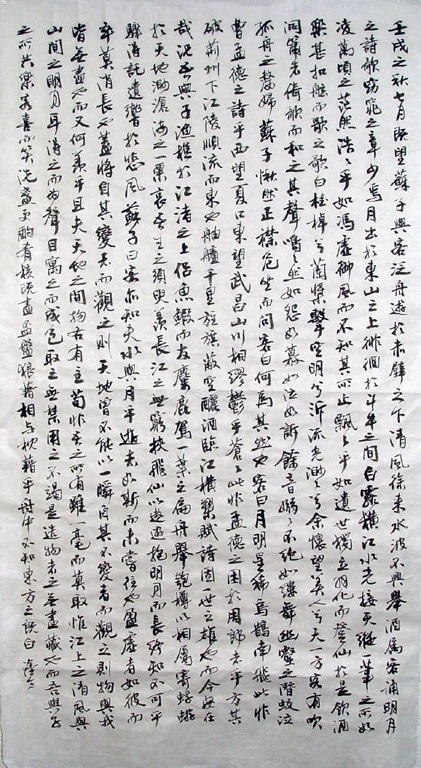 壬戌之秋七月既望蘇子與客泛舟遊於赤壁之下清風徐來水波不興舉酒屬客誦明月
之詩歌窈窕之章少焉月出於東山之上徘徊於斗牛之間白露橫江水光接天縱一葦之所如
凌萬頃之茫然浩浩乎如馮虛御風而不知其所止飄飄乎如遺世獨立羽化而登仙於是飲酒
樂甚扣舷而歌之歌曰桂棹兮蘭槳擊空明兮泝流光渺渺兮余懷望美人兮天一方客有吹
洞簫者倚歌而和之其聲嗚嗚然如怨如慕如泣如訴餘音嫋嫋不絕如縷舞幽壑之潛蛟泣
孤舟之嫠婦蘇子愀然正襟危坐而問客曰何為其然也客曰月明星稀烏鵲南飛此非
曹孟德之詩乎西望夏口東望武昌山川相繆鬱乎蒼蒼此非孟德之困於周郎者乎方其
破荊州下江陵順流而東也舳艫千里旌旗蔽空釃酒臨江橫槊賦詩固一世之雄也而今安在
哉況吾與子漁樵於江渚之上侶魚鰕而友麋鹿駕一葉之扁舟舉匏樽以相屬寄蜉蝣
於天地渺滄海之一粟哀吾生之須臾羨長江之無窮挾飛仙以遨遊抱明月而長終知不可乎
驟得託遺響於悲風蘇子曰客亦知夫水與月乎逝者如斯而未嘗往也盈虛者如彼而
卒莫消長也蓋將自其變者而觀之則天地曾不能以一瞬自其不變者而觀之則物與我
皆無盡也而又何羨乎且夫天地之間物各有主苟非吾之所有雖一毫而莫取惟江上之清風與
山間之明月耳得之而為聲目寓之而成色取之無禁用之不竭是造物者之無盡藏也而吾與子
之所共樂客喜而笑洗盞更酌肴核既盡盃盤狼藉相與枕藉乎舟中不知東方之既白